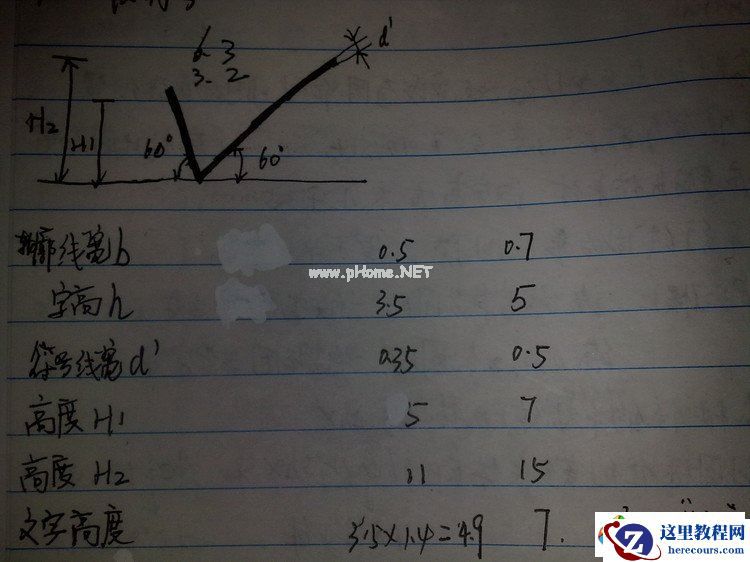 6.3
3.2
d'
H2
H1
60°
60°
轮廓线宽b 0.5 0.7
www.pHome.NET
字高h 3.5 5
符号线宽d' 0.35 0.5
高度H1 5 7
高度H2 11 15
文字高度 3.5×1.4=4.9 7.
这里教程网
herecours.com